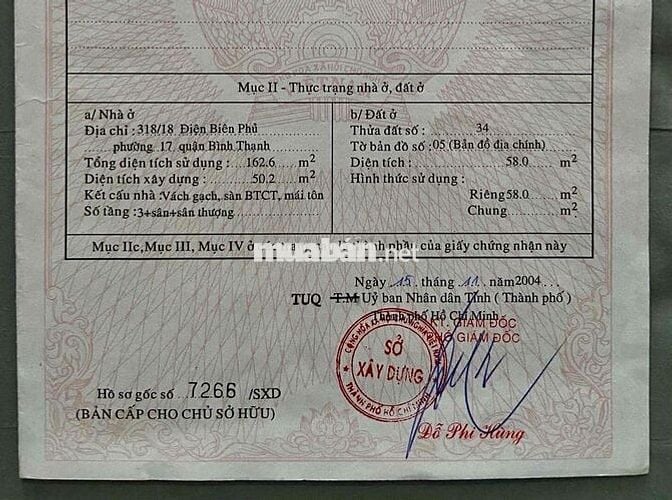 Mục II - Thực trạng nhà ở, đất ở
a/ Nhà ở
Địa chỉ : 318/18 Điện Biên Phủ
phường 17, quận Bình Thạnh
Tổng diện tích sử dụng : 162.6 m2
Diện tích xây dựng : 50,2 m2
Kết cấu nhà : Vách gạch, sàn BTCT, mái tôn
Số tầng : 3+sân+sân thượng
b/ Đất ở
Thửa đất số : 34
Tờ bản đồ số : 05 (Bản đồ địa chính)
Diện tích : 58.0 m2
Hình thức sử dụng :
Riêng 58.0 m2
Chung m2
Mục IIc, Mục III, Mục IV ở nhau của giấy chứng nhận này
muaban.net
Ngày 15 tháng 11 năm 2004
TUQ T.M Uỷ ban Nhân dân Tỉnh ( Thành phố )
Thành phố Hồ Chí Minh
KT. GIÁM ĐỐC
PHÓ GIÁM ĐỐC
SỞ
XÂY DỰNG
THÀNH PHỐ HỒ CHÍ MINH
Đỗ Phi Hùng
Hồ sơ gốc số 7266 /SXD
(BẢN CẤP CHO CHỦ SỞ HỮU)